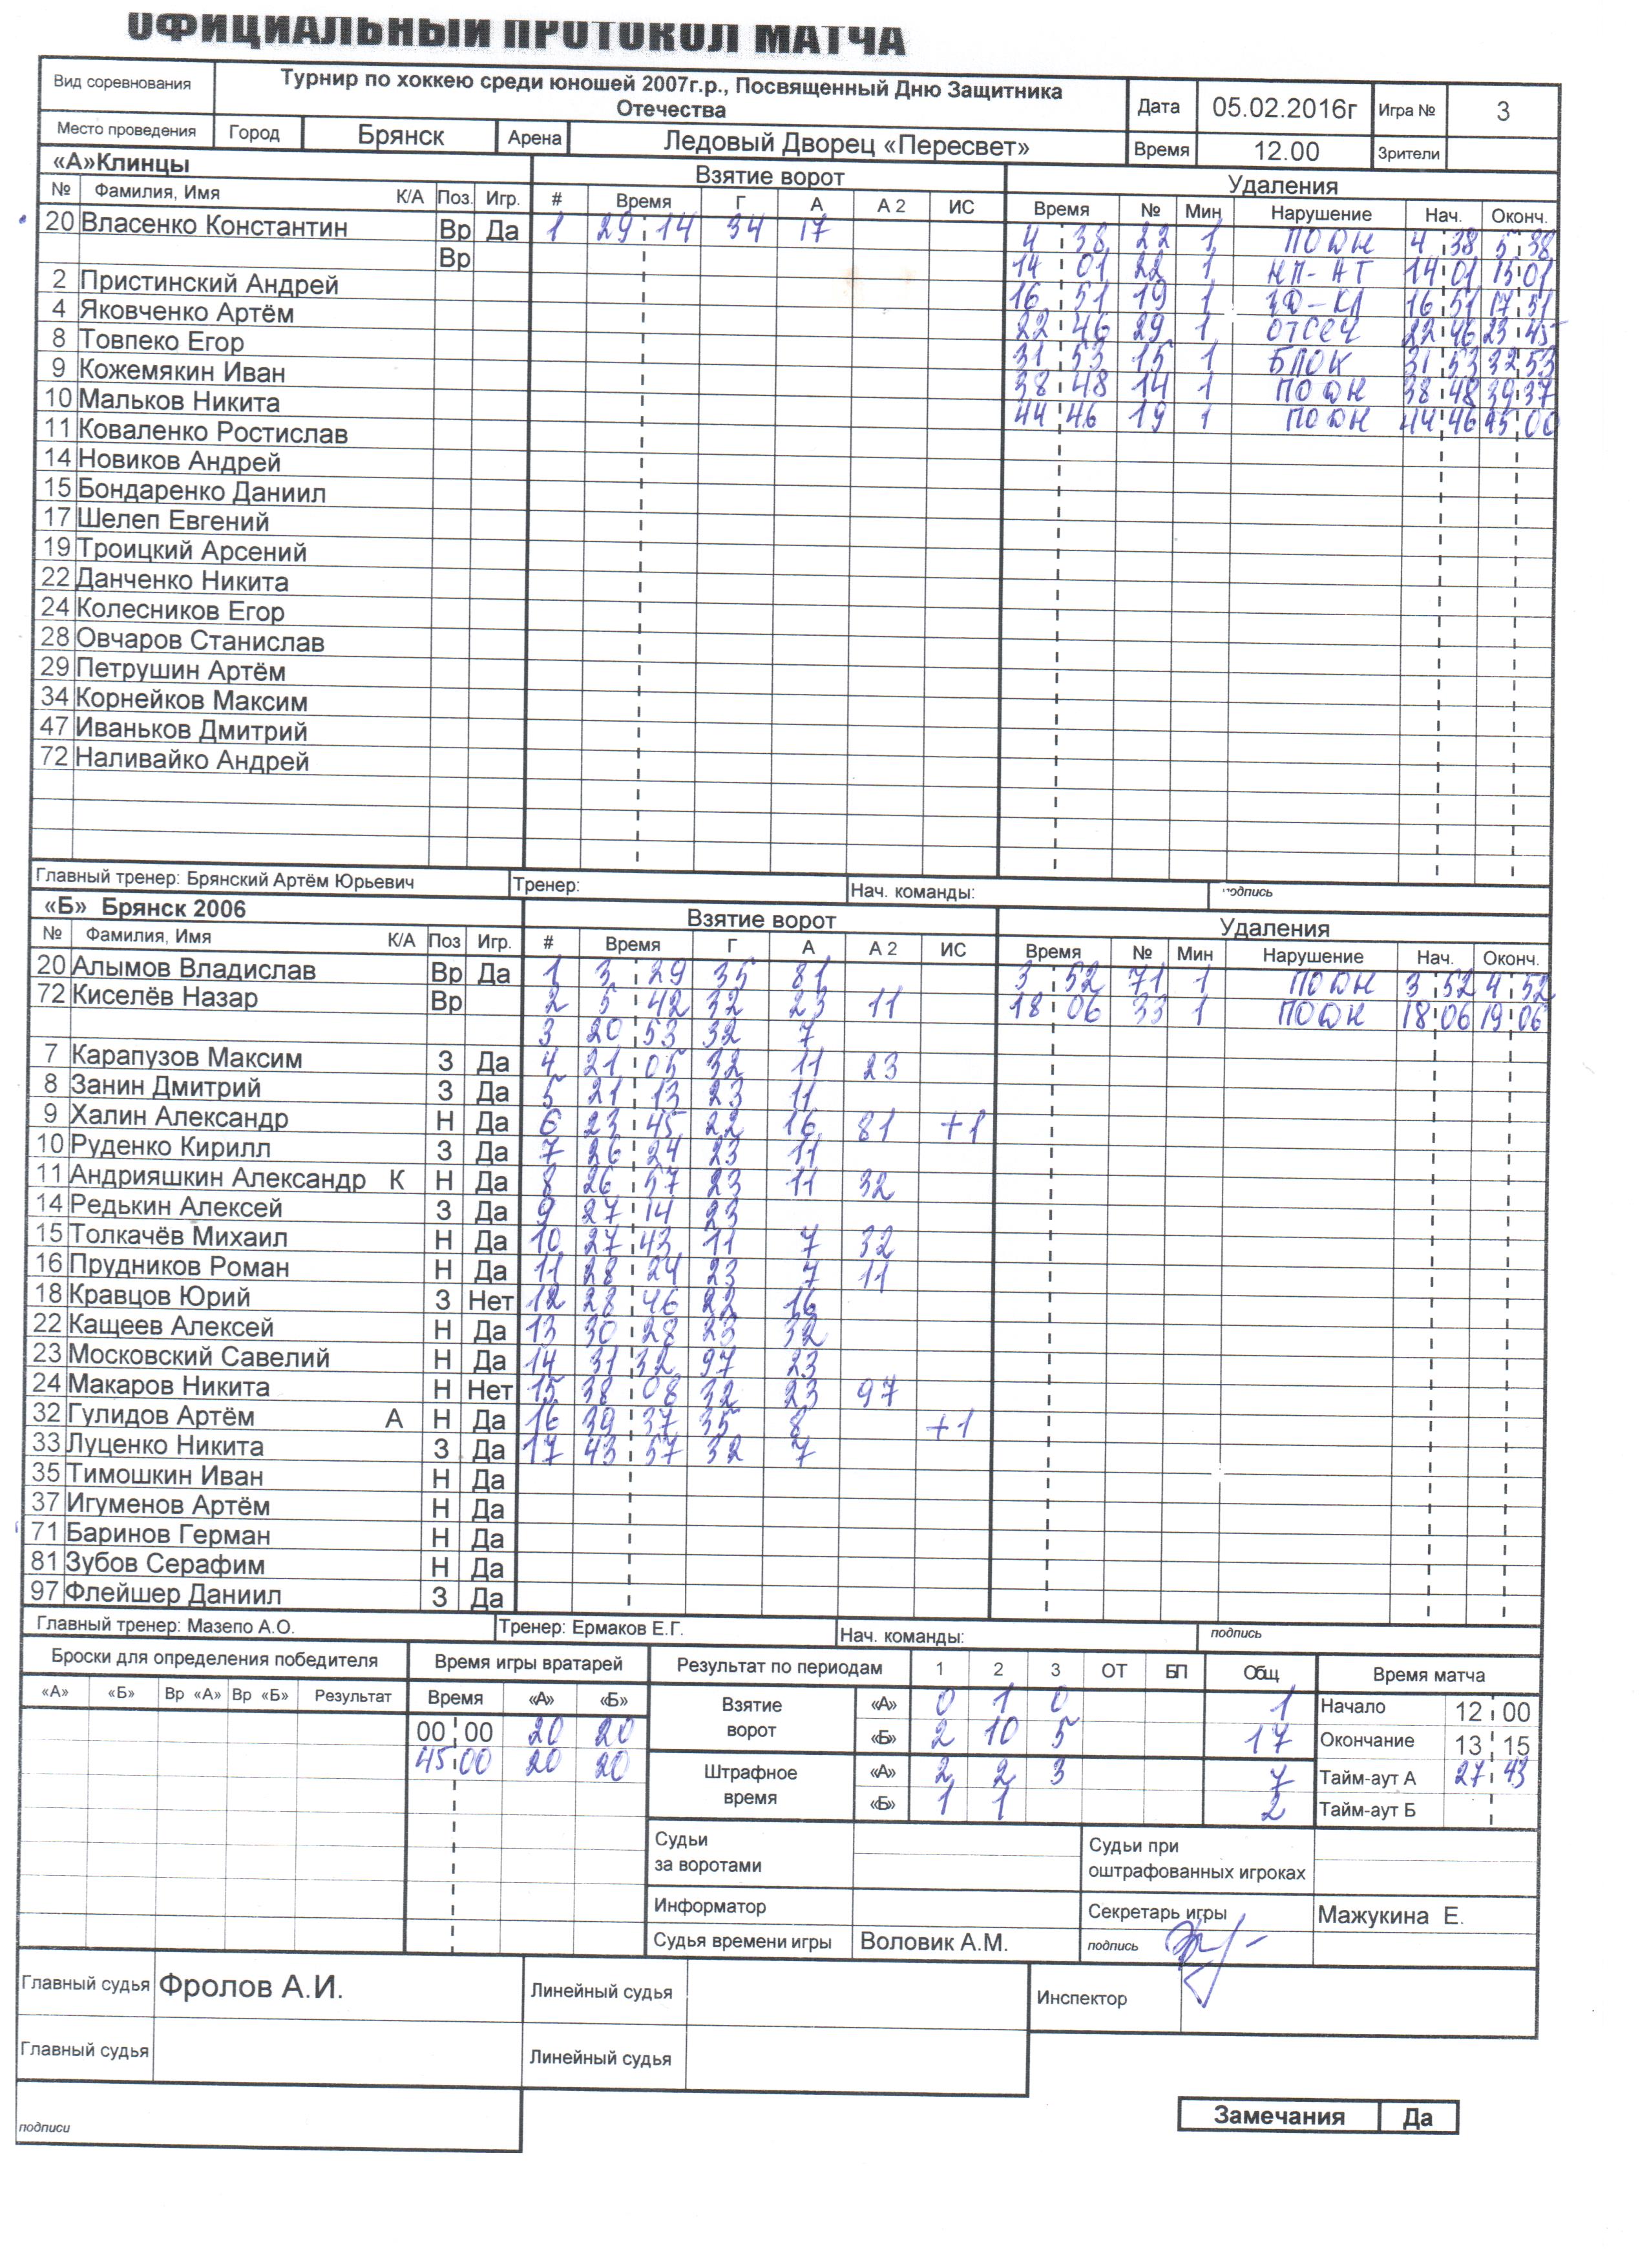 ОФИЦИАЛЬНЫЙ ПРОТОКОЛ МАТЧА
Вид соревнования Турнир по хоккею среди юношей 2007г.р., Посвященный Дню Защитника Отечества Дата 05.02.2016г Игра № 3
Место проведения Город Брянск Арена Ледовый Дворец «Пересвет» Время 12.00 Зрители
«А»Клинцы Взятие ворот Удаления
№ Фамилия, Имя К/А Поз. Игр. # Время Г А А 2 ИС Время № Мин Нарушение Нач. Оконч.
20 Власенко Константин Вр Да 1 29 14 34 17 4 38 22 1 ПОДН 4 38 5 38
Вр 14 01 22 1 НП-АТ 14 01 15 01
2 Пристинский Андрей 16 51 19 1 16 51 17 51
4 Яковченко Артём 22 46 29 1 ОТСЕЧ 22 46 23 45
8 Товпеко Егор 31 53 15 1 БЛОК 31 53 32 53
9 Кожемякин Иван 38 48 14 1 ПОДН 38 48 39 37
10 Мальков Никита 44 46 19 1 ПОДН 44 46 45 00
11 Коваленко Ростислав
14 Новиков Андрей
15 Бондаренко Даниил
17 Шелеп Евгений
19 Троицкий Арсений
22 Данченко Никита
24 Колесников Егор
28 Овчаров Станислав
29 Петрушин Артём
34 Корнейков Максим
47 Иваньков Дмитрий
72 Наливайко Андрей
Главный тренер: Брянский Артём Юрьевич Тренер: Нач. команды: подпись
«Б» Брянск 2006 Взятие ворот Удаления
№ Фамилия, Имя К/А Поз Игр. # Время Г А А 2 ИС Время № Мин Нарушение Нач. Оконч.
20 Алымов Владислав Вр Да 1 3 29 35 81 3 52 71 1 ПОДН 3 52 4 52
72 Киселёв Назар Вр 2 5 42 32 23 11 18 06 33 1 ПОДН 18 06 19 06
3 20 53 32 7
7 Карапузов Максим З Да 4 21 05 32 11 23
8 Занин Дмитрий З Да 5 21 13 23 11
9 Халин Александр Н Да 6 23 45 22 16 81 +1
10 Руденко Кирилл З Да 7 26 24 23 11
11 Андрияшкин Александр К Н Да 8 26 57 23 11 32
14 Редькин Алексей З Да 9 27 14 23
15 Толкачёв Михаил Н Да 10 27 43 11 7 32
16 Прудников Роман Н Да 11 28 24 23 7 11
18 Кравцов Юрий З Нет 12 28 46 22 16
22 Кащеев Алексей Н Да 13 30 28 23 32
23 Московский Савелий Н Да 14 31 32 97 23
24 Макаров Никита Н Нет 15 38 08 32 23 97
32 Гулидов Артём А Н Да 16 39 37 35 8 +1
33 Луценко Никита З Да 17 43 57 32 7
35 Тимошкин Иван Н Да
37 Игуменов Артём Н Да
71 Баринов Герман Н Да
81 Зубов Серафим Н Да
97 Флейшер Даниил З Да
Главный тренер: Мазепо А.О. Тренер: Ермаков Е.Г. Нач. команды: подпись
Броски для определения победителя Время игры вратарей Результат по периодам 1 2 3 ОТ БП Общ Время матча
«А» «Б» Вр «А» Вр «Б» Результат Время «А» «Б» Взятие ворот «А» 0 1 0 1 Начало 12 00
00 00 20 20 «Б» 2 10 5 17 Окончание 13 15
45 00 20 20 Штрафное время «А» 2 2 3 7 Тайм-аут А 27 43
«Б» 1 1 2 Тайм-аут Б
Судьи за воротами Судьи при оштрафованных игроках
Информатор Секретарь игры Мажукина Е.
Судья времени игры Воловик А.М. подпись
Главный судья Фролов А.И. Линейный судья Инспектор
Главный судья Линейный судья
подписи
Замечания Да